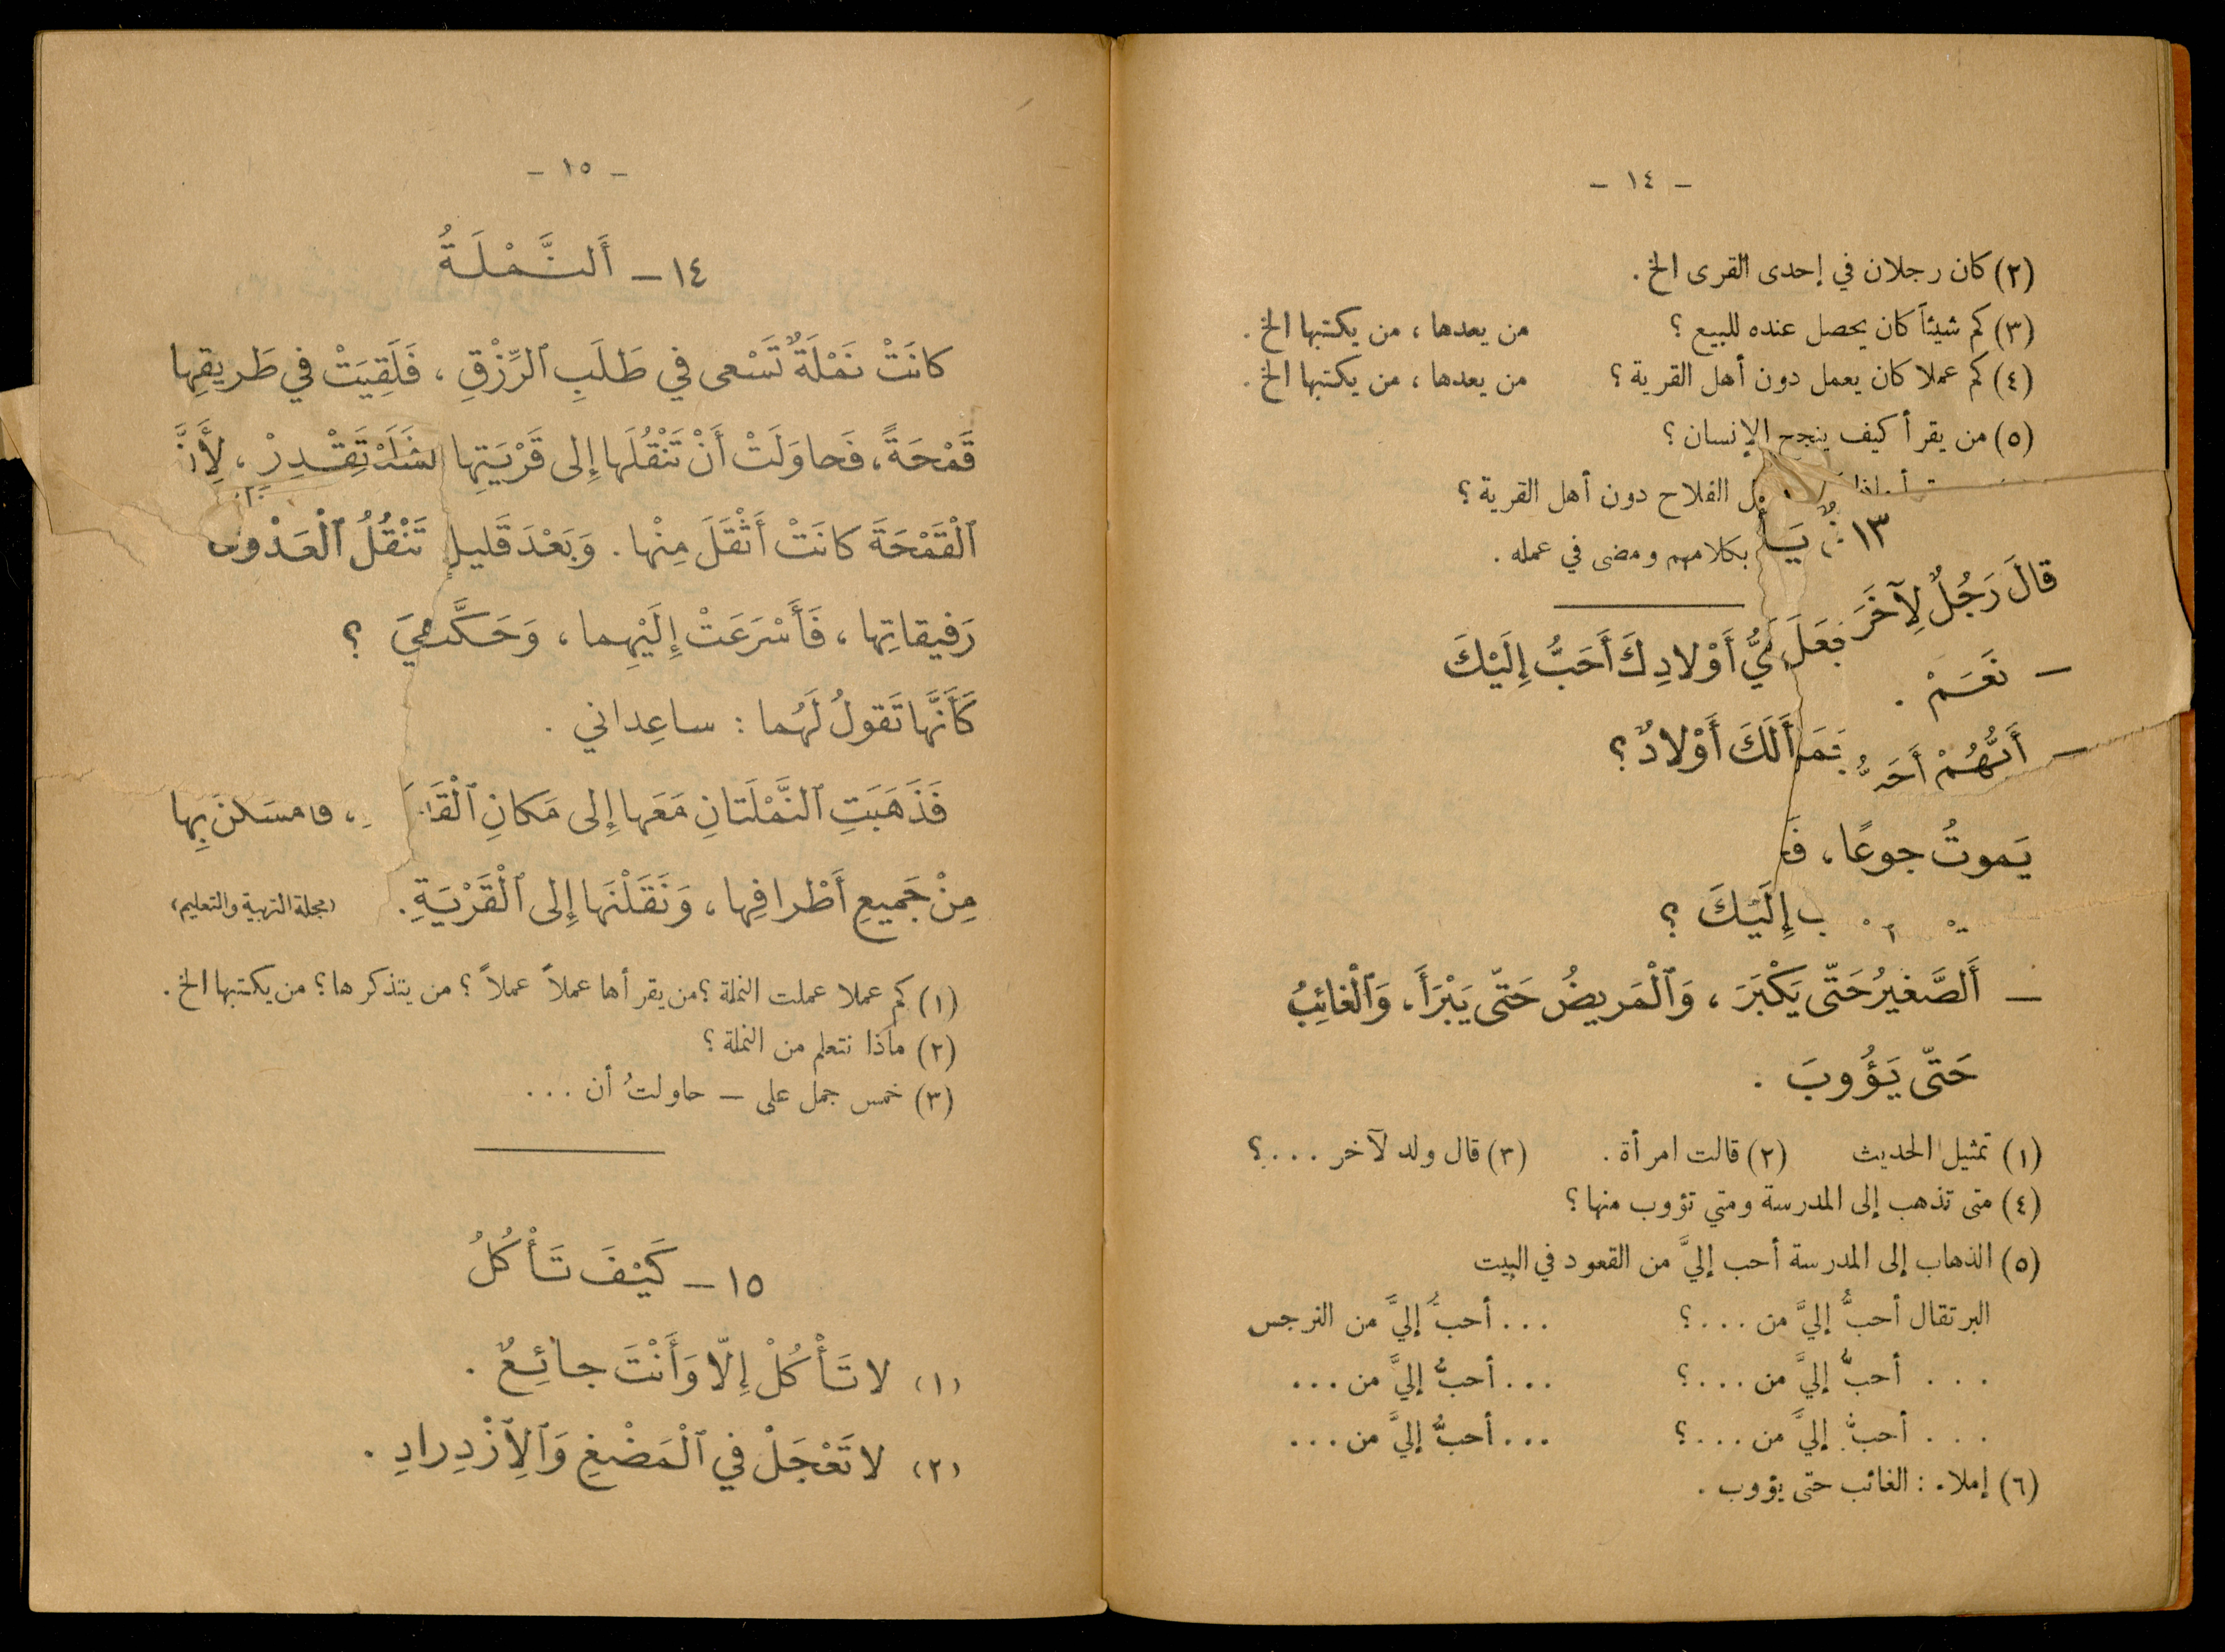 - ١٤ -
(٢) كان رجلان في إحدى القرى الخ .
(٣) كم شيئاً كان يحصل عنده للبيع ؟ من يعدها ، من يكتبها الخ .
(٤) كم عملا كان يعمل دون أهل القرية ؟ من يعدها ، من يكتبها الخ .
(٥) من يقرأ كيف ينجح الإنسان ؟
الفلاح دون أهل القرية ؟
بكلامهم ومضى في عمله .
١٣
قالَ رَجُلٌ لِآخَرَ
أَوْلادِكَ أَحَبُّ إِلَيْكَ
— نَعَمْ .
أَلَكَ أَوْلادٌ ؟
— أَيُّهُمْ
يَموتُ جوعًا ،
إِلَيْكَ ؟
— أَلصَّغيرُ حَتّى يَكْبَرَ ، وَٱلْمَريضُ حَتّى يَبْرَأَ ، وَٱلْغائِبُ
حَتّى يَؤُوبَ .
(١) تمثيل الحديث (٢) قالت امرأة . (٣) قال ولد لآخر . . . . ؟
(٤) متى تذهب إلى المدرسة ومتي تؤوب منها ؟
(٥) الذهاب إلى المدرسة أحب إليَّ من القعود في البيت
البرتقال أحبُّ إليَّ من . . . . ؟ . . . أحبُّ إليَّ من النرجس
. . . أحبُّ إليَّ من . . . . ؟ . . . أحبُّ إليَّ من . . .
. . . أحبُّ إليَّ من . . . . ؟ . . . أحبُّ إليَّ من . . .
(٦) إملاء : الغائب حتى يؤوب .
- ١٥ -
١٤ — أَلنَّمْلَةُ
كانَتْ نَمْلَةٌ تَسْعى في طَلَبِ ٱلرِّزْقِ ، فَلَقِيَتْ في طَريقِها
قَمْحَةً ، فَحاوَلَتْ أَنْ تَنْقُلَها إِلى قَرْيَتِها تَقْدِرْ ، لِأَنَّ
ٱلْقَمْحَةَ كانَتْ أَثْقَلَ مِنْها . وَبَعْدَ قَليلٍ تَنْقُلُ
رَفيقاتِها ، فَأَسْرَعَتْ إِلَيْهِما ، ؟
كَأَنَّها تَقولُ لَهُما : ساعِداني .
فَذَهَبَتِ ٱلنَّمْلَتانِ مَعَها إِلى مَكانِ بِها
مِنْ جَميعِ أَطْرافِها ، وَنَقَلْنَها إِلى ٱلْقَرْيَةِ . (مجلة التربية والتعليم)
(١) كم عملا عملت النملة ؟ من يقرأها عملاً عملاً ؟ من يتذكرها ؟ من يكتبها الخ .
(٢) ماذا نتعلم من النملة ؟
(٣) خمس جمل على — حاولتُ أن . . .
١٥ — كَيْفَ تَأْكُلُ
(١) لا تَأْكُلْ إِلّا وَأَنْتَ جائِعٌ .
(٢) لا تَعْجَلْ في ٱلْمَضْغِ وَٱلِٱزْدِرادِ .